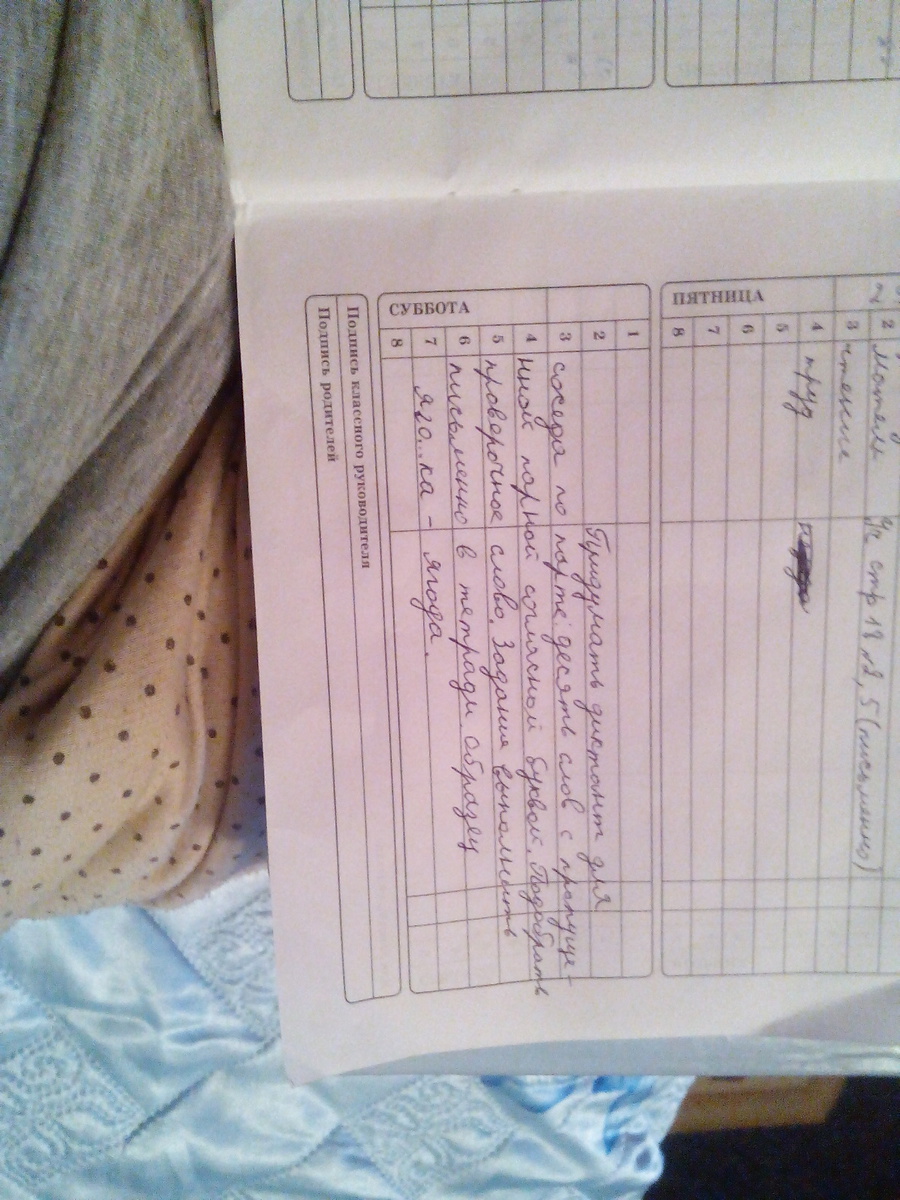 ПЯТНИЦА
2 матем Уч стр 18 №2, 5 (письменно)
3 чтение
4 труд
5
6
7
8
СУББОТА
1
2 Придумать диктант для
3 соседа по парте: десять слов с пропуще-
4 нной парной согласной буквой. Подобрать
5 проверочное слово. Задания выполнить
6 письменно в тетради. Образец
7 яго...ка - ягода.
8
Подпись классного руководителя
Подпись родителей